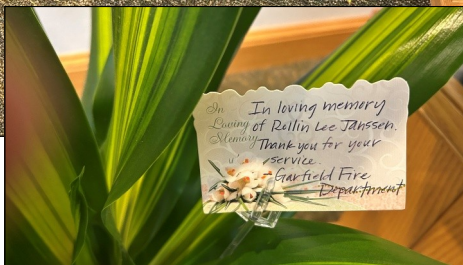 In
Loving
Memory
In loving memory
of Rollin Lee Janssen.
Thank you for your
service.
Garfield Fire
Department